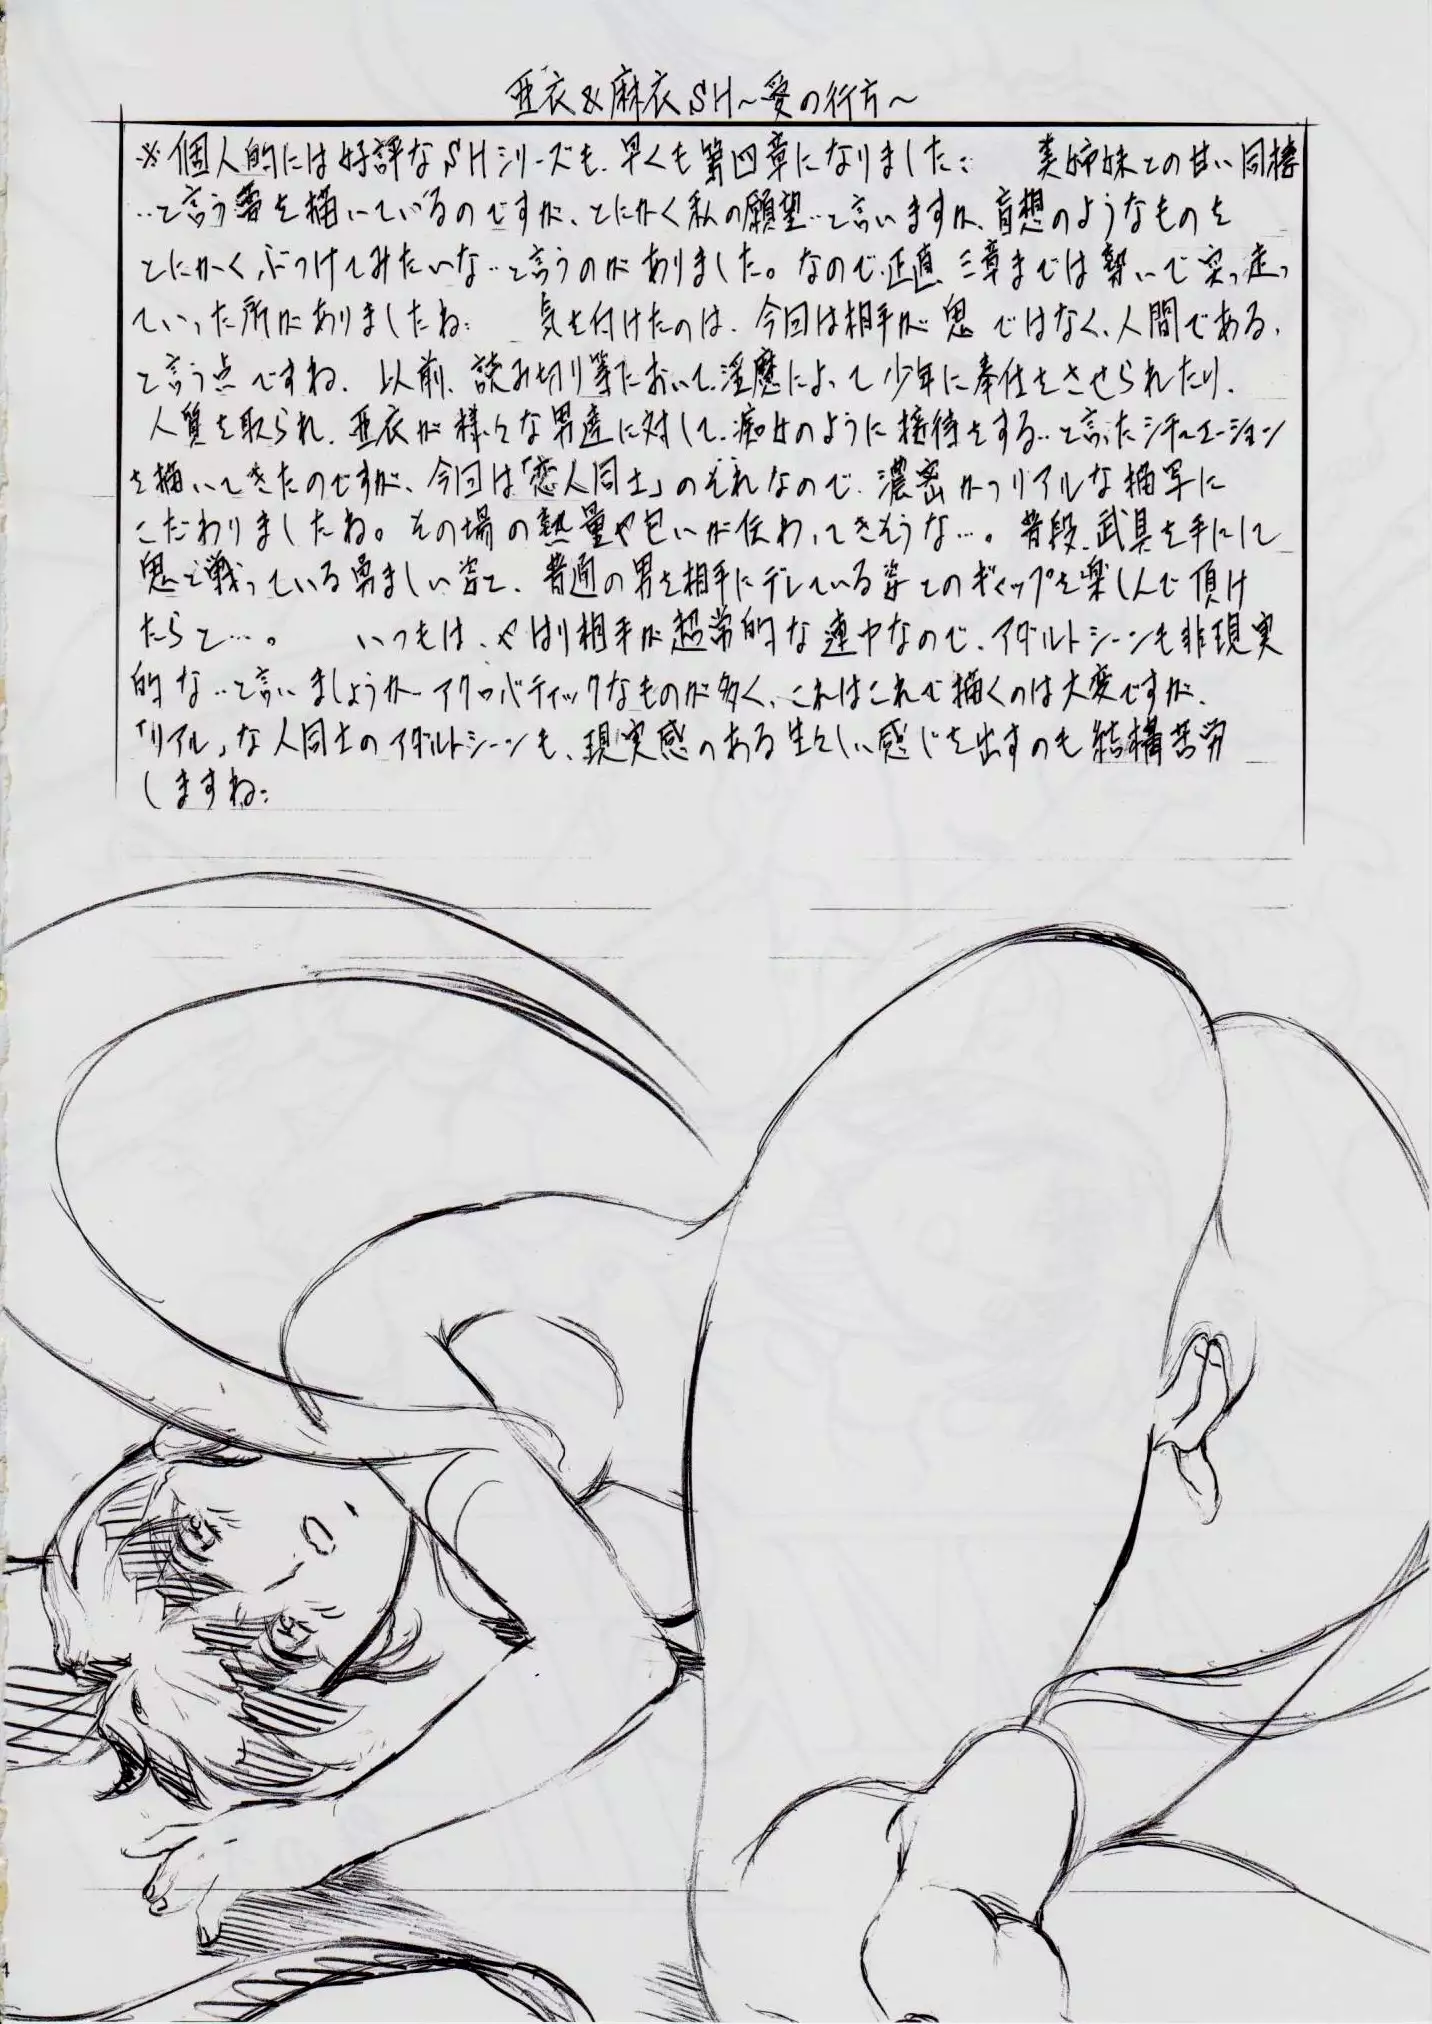 亜衣&麻衣SH～愛の行方～
※個人的には好評なSHシリーズも、早くも第四章になりました… 美姉妹との甘い同棲
…と言う夢を描いているのですが、とにかく私の願望…と言いますか、盲想のようなものを
とにかくぶつけてみたいな…と言うのがありました。なので、正直三章までは勢いで突っ走っ
ていった所がありましたね… 気を付けたのは、今回は相手が鬼ではなく、人間である、
と言う点ですね。以前、読み切り等において、淫魔によって少年に奉仕をさせられたり、
人質を取られ、亜衣が様々な男達に対して、痴女のように接待をする…と言ったシチュエーション
を描いてきたのですが、今回は「恋人同士」のそれなので、濃密かつリアルな描写に
こだわりましたね。その場の熱量や匂いが伝わってきそうな…。普段、武具を手にして
鬼と戦っている勇ましい姿と、普通の男を相手にデレている姿とのギャップを楽しんで頂け
たらと…。 いつもは、やはり相手が超常的な連中なので、アダルトシーンも非現実
的な…と言いましょうか、アクロバティックなものが多く、これはこれで描くのは大変ですが、
「リアル」な人同士のアダルトシーンも、現実感のある生々しい感じを出すのも結構苦労
しますね…
4